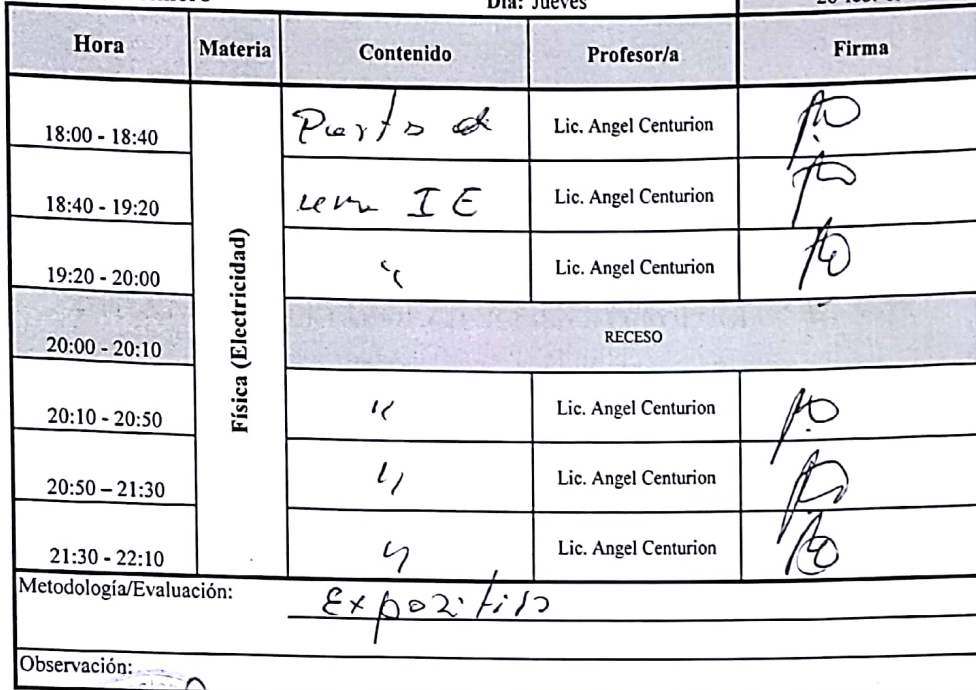 Día: Jueves
Hora Materia Contenido Profesor/a Firma
18:00 - 18:40 Lic. Angel Centurion
18:40 - 19:20 IE Lic. Angel Centurion
19:20 - 20:00 " Lic. Angel Centurion
Física (Electricidad)
20:00 - 20:10 RECESO
20:10 - 20:50 " Lic. Angel Centurion
20:50 – 21:30 " Lic. Angel Centurion
21:30 - 22:10 " Lic. Angel Centurion
Metodología/Evaluación: Expozitiva
Observación: